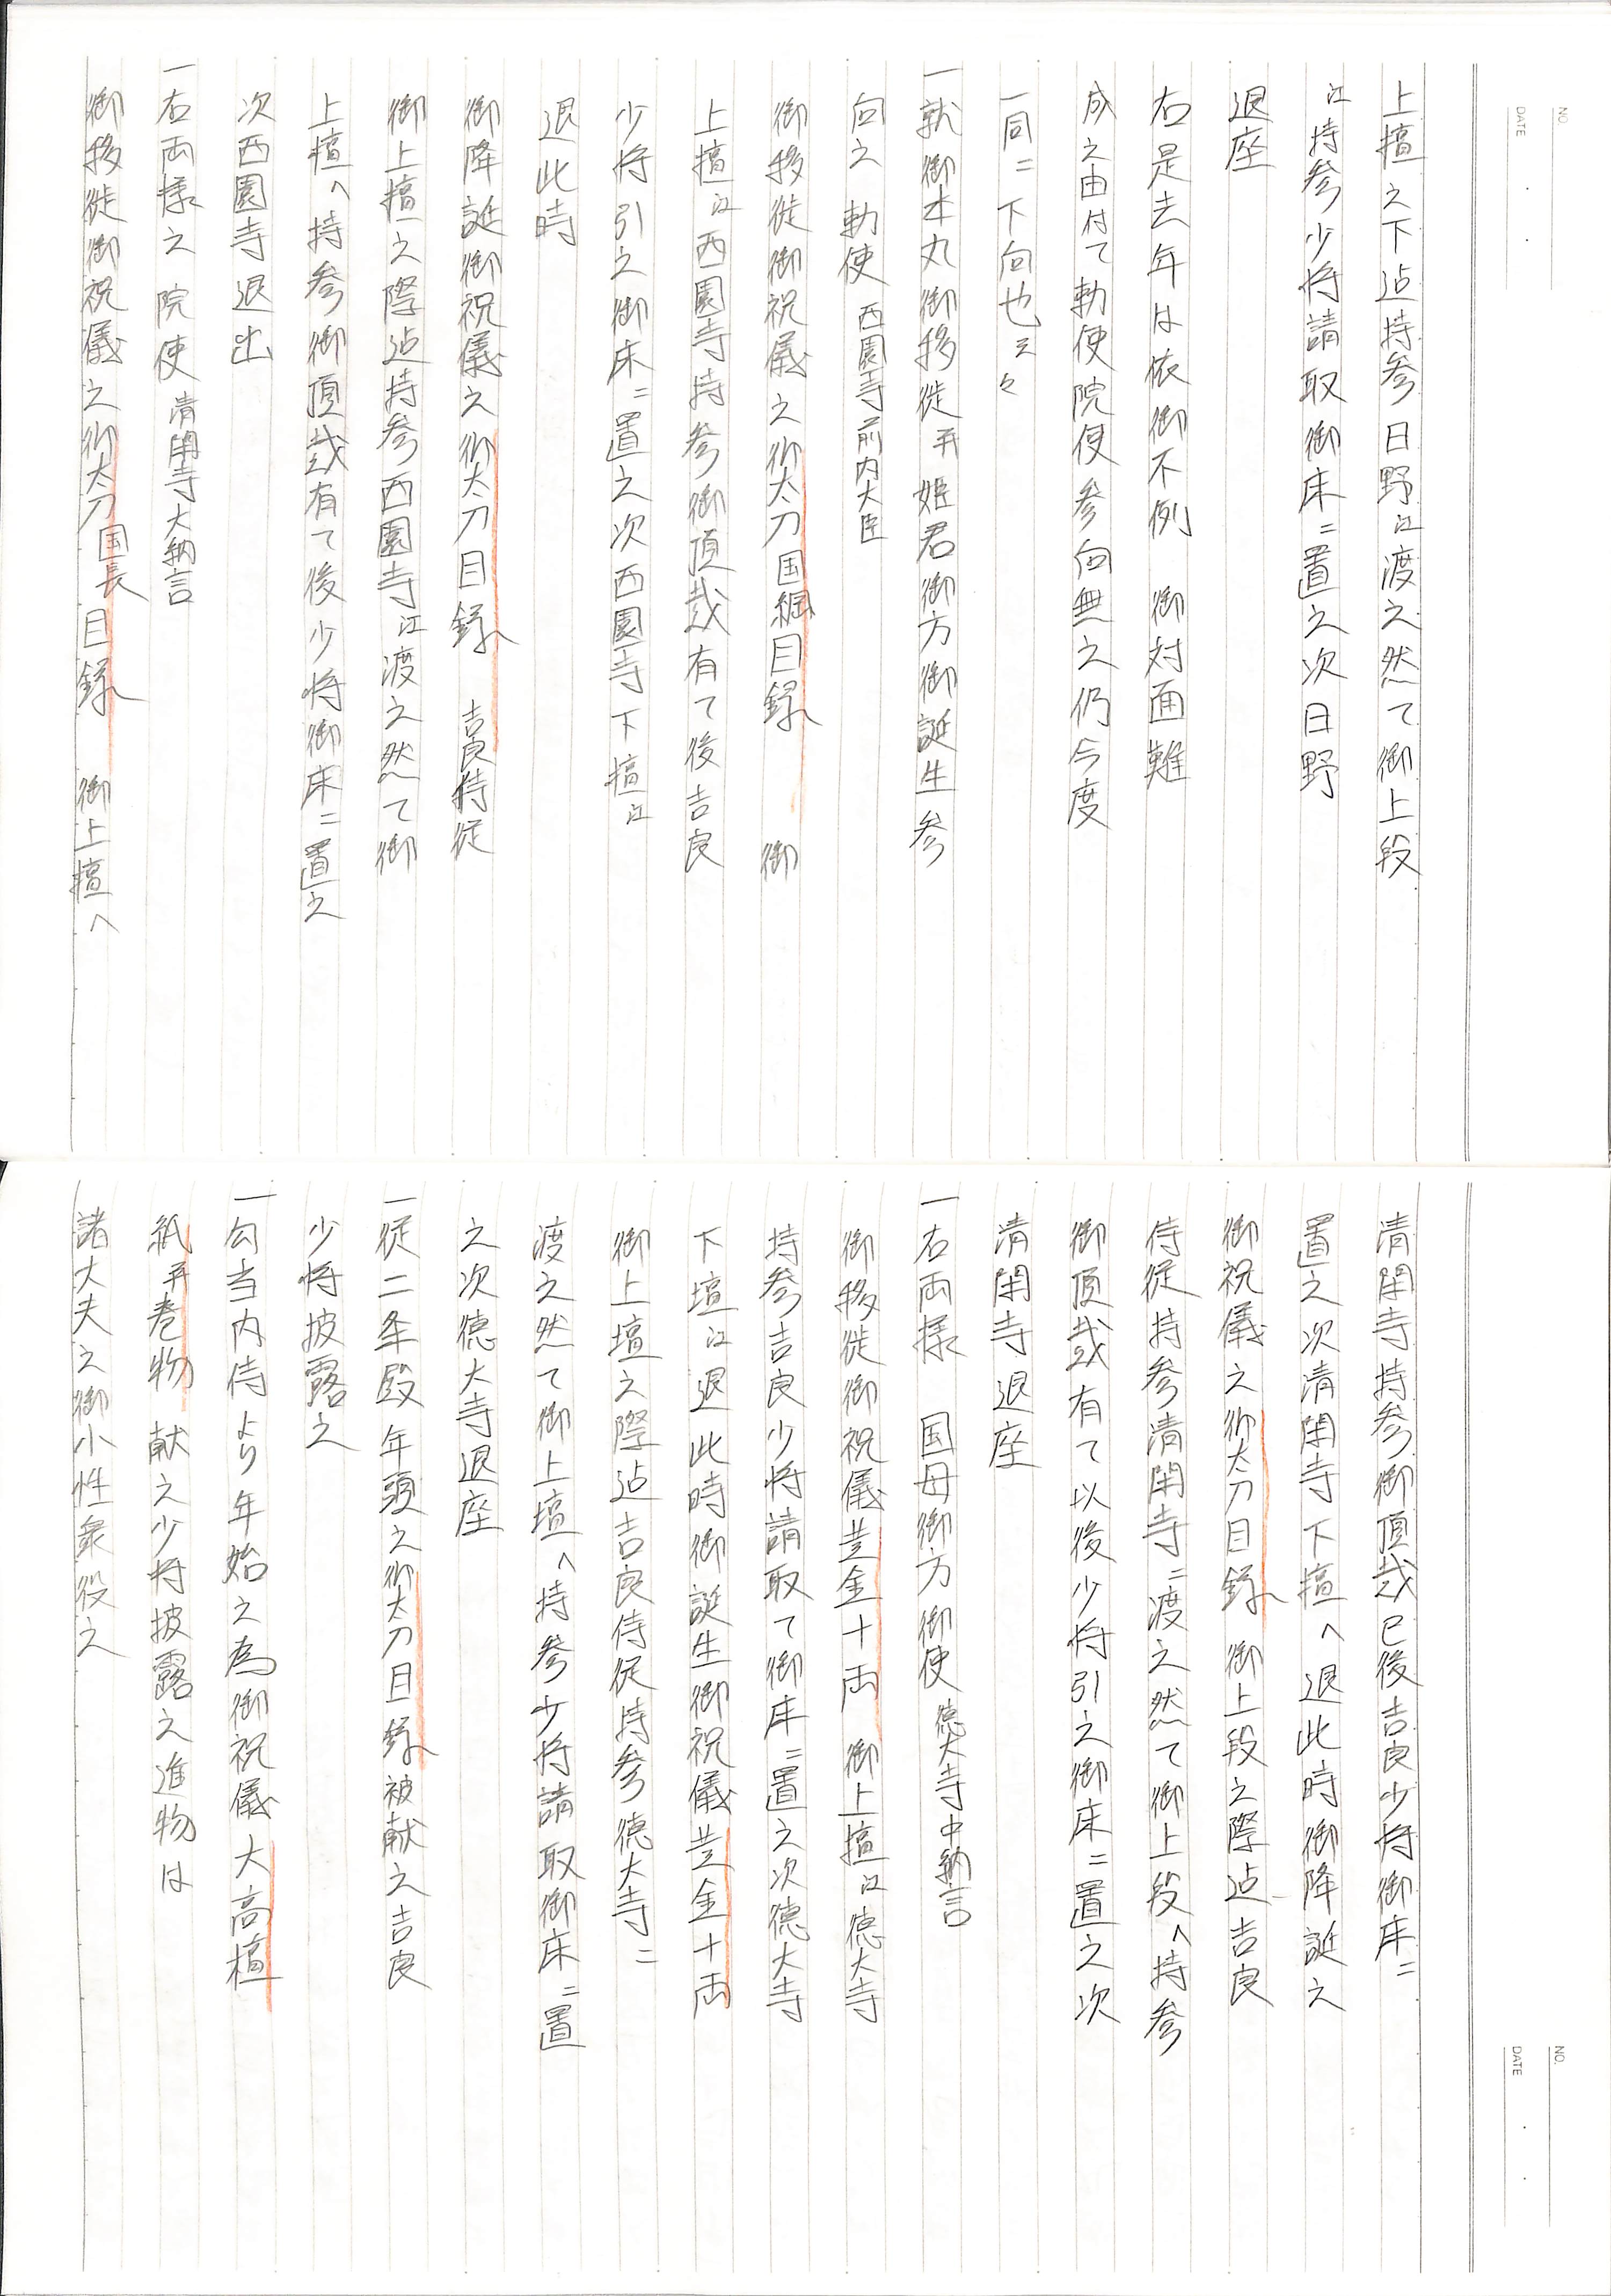 NO.
DATE
上壇之下迠持参日野江渡之然て御上段
江持参少将請取御床ニ置之次日野
退座
右是去年は依御不例 御対面難
成之由付て勅使院使参向無之仍今度
一同ニ下向也云々
一就御本丸御移徙并姫君御方御誕生参
向之 勅使 西園寺前内大臣
御移徙御祝儀之御太刀国綱目録 御
上壇江西園寺持参御頂戴有て後吉良
少将引之御床ニ置之次西園寺下壇江
退此時
御降誕御祝儀之御太刀目録 吉良侍従
御上壇之際迠持参西園寺江渡之然て御
上壇へ持参御頂戴有て後少将御床ニ置之
次西園寺退出
一右両様之 院使 清閑寺大納言
御移徙御祝儀之御太刀国長目録 御上壇へ
NO.
DATE
清閑寺持参御頂戴已後吉良少将御床ニ
置之次清閑寺下壇へ退此時御降誕之
御祝儀之御太刀目録 御上段之際迠吉良
侍従持参清閑寺ニ渡之然て御上段へ持参
御頂戴有て以後少将引之御床ニ置之次
清閑寺退座
一右両様 国母御方御使 徳大寺中納言
御移徙御祝儀黄金十両 御上壇江徳大寺
持参吉良少将請取て御床ニ置之次徳大寺
下壇江退此時御誕生御祝儀黄金十両
御上壇之際迠吉良侍従持参徳大寺ニ
渡之然て御上壇へ持参少将請取御床ニ置
之次徳大寺退座
一従二条殿年頭之御太刀目録被献之吉良
少将披露之
一勾当内侍より年始之為御祝儀大高檀
紙并巻物献之少将披露之進物は
諸大夫之御小性衆役之